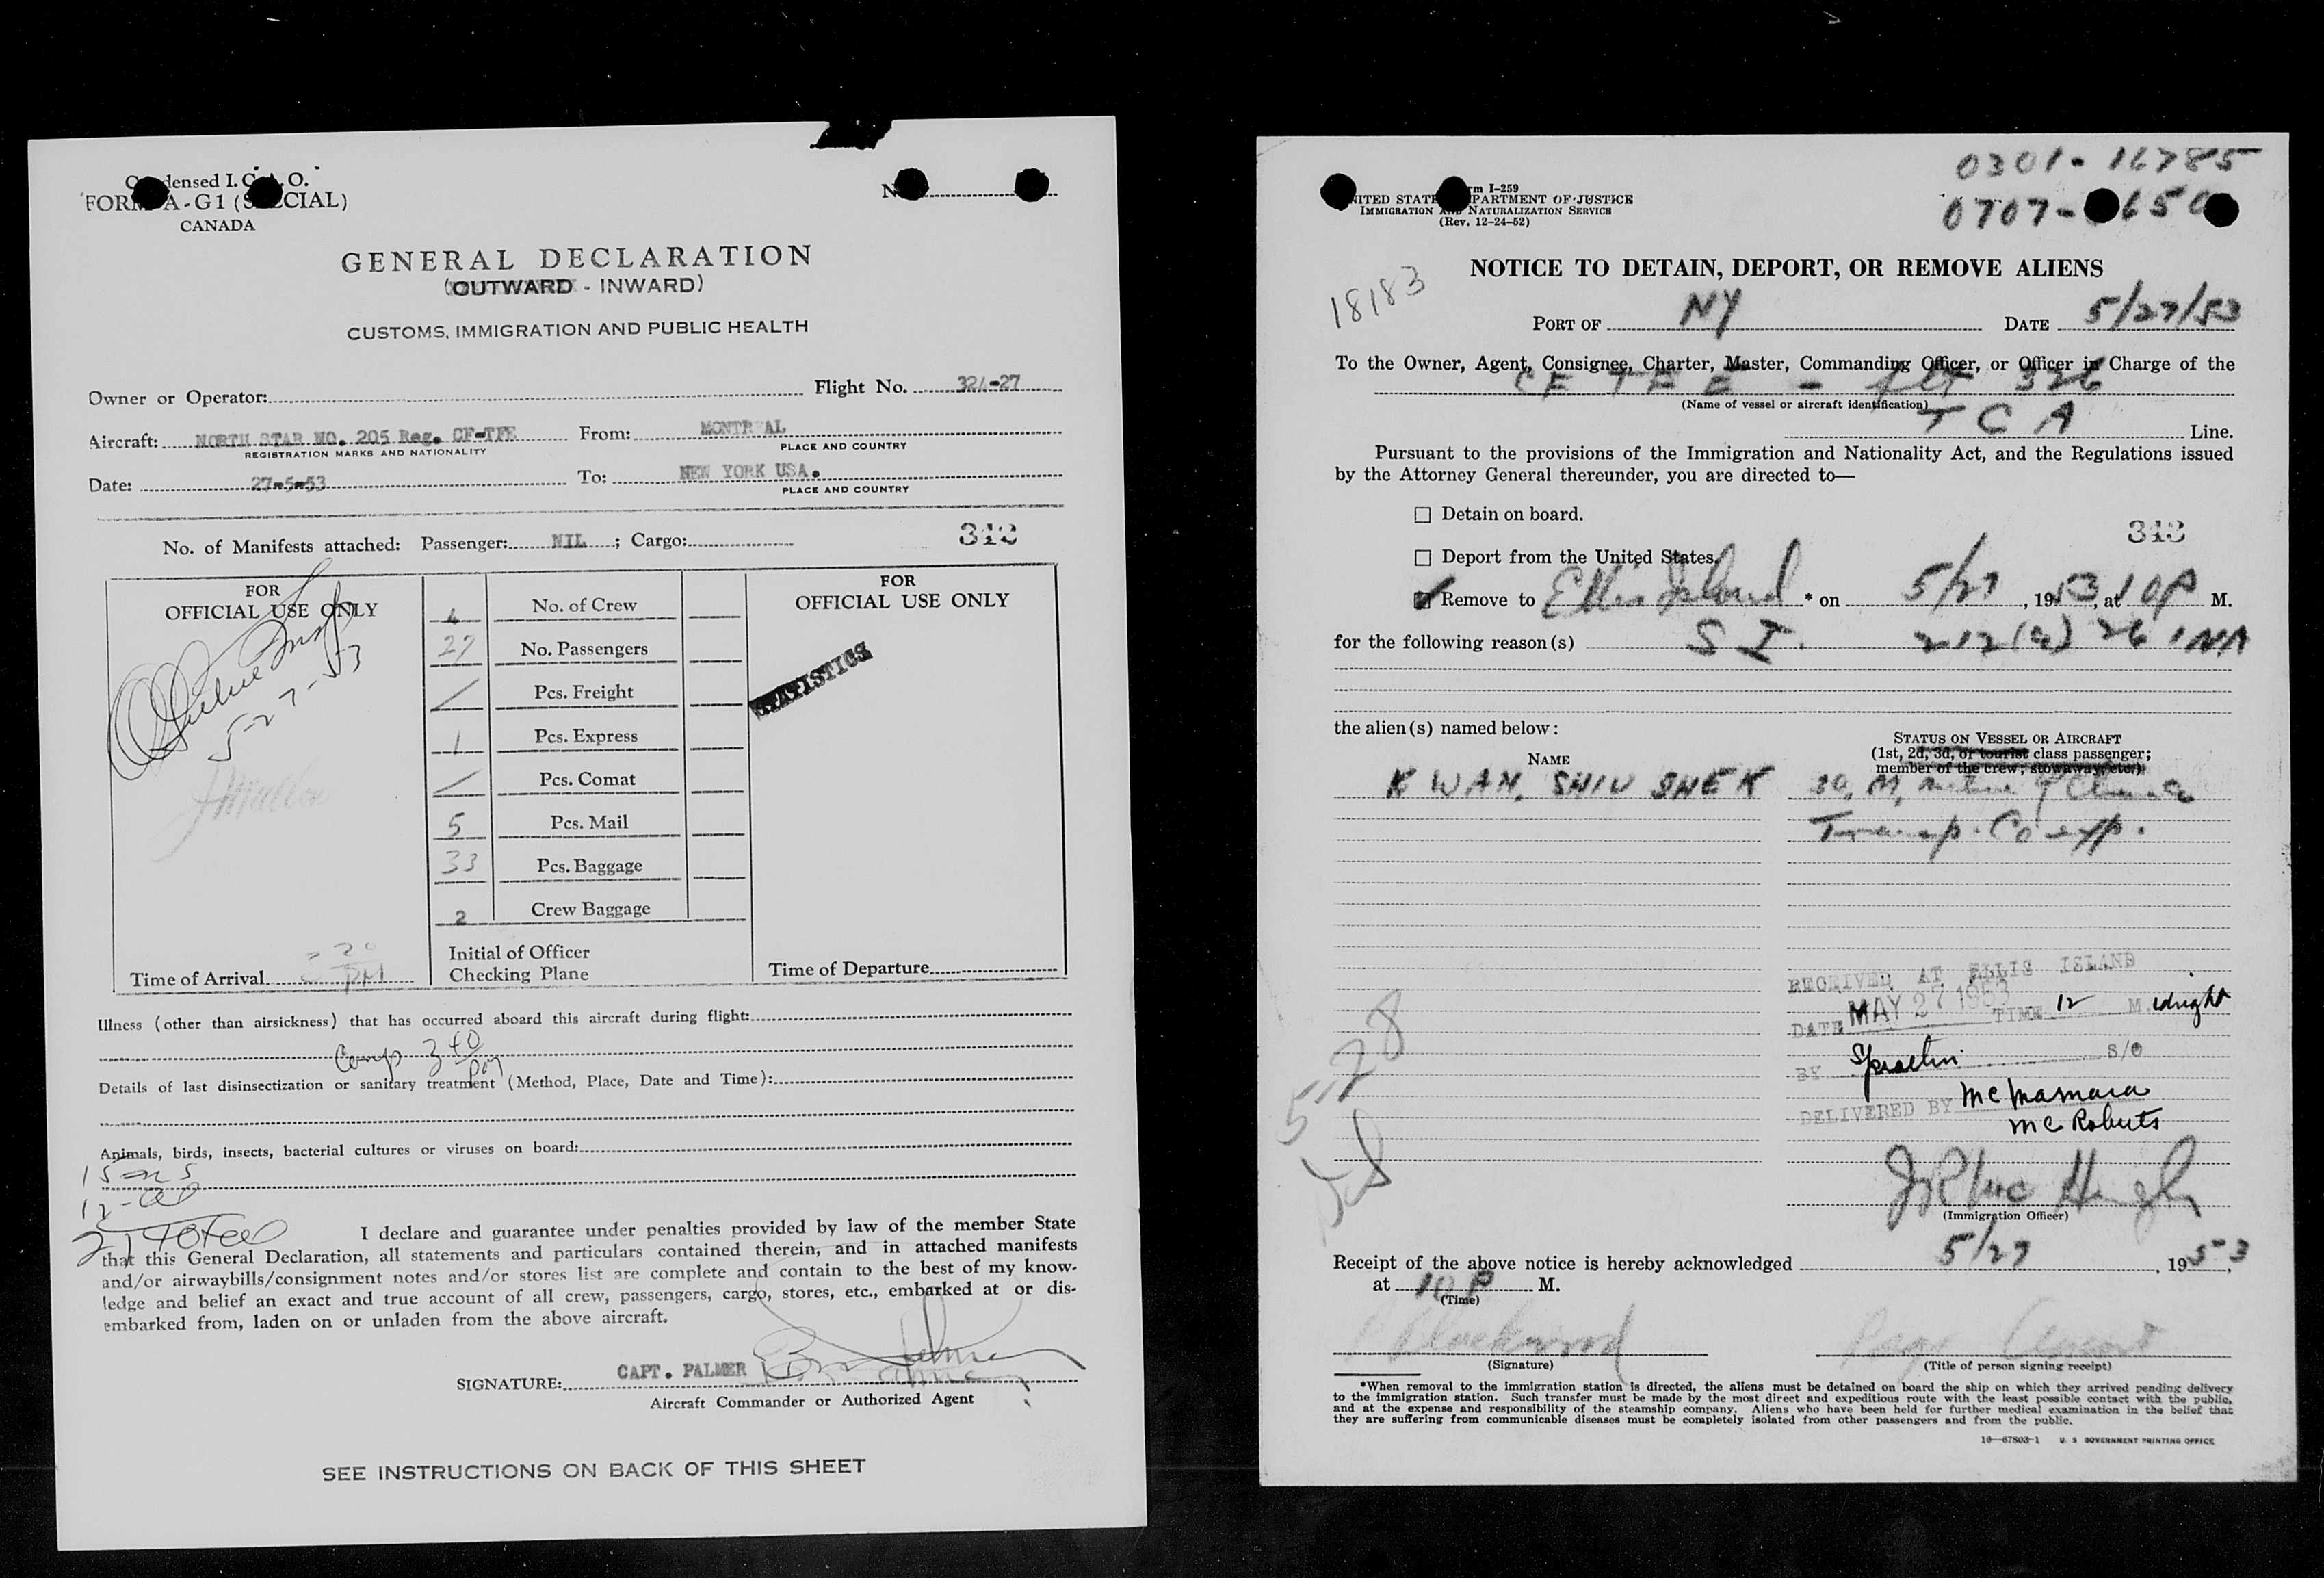 Condensed I.C.A.O.
FORM A-G1 (SPECIAL)
CANADA
GENERAL DECLARATION
(OUTWARD - INWARD)
CUSTOMS, IMMIGRATION AND PUBLIC HEALTH
Owner or Operator: Flight No.
Aircraft: NORTH STAR NO. 205 Reg. CF-TFE From: MONTREAL
REGISTRATION MARKS AND NATIONALITY PLACE AND COUNTRY
Date: 27-5-53 To: NEW YORK USA.
PLACE AND COUNTRY
No. of Manifests attached: Passenger: NIL ; Cargo: 342
FOR
OFFICIAL USE ONLY
5-27-53
Time of Arrival PM
4 No. of Crew
27 No. Passengers
/ Pcs. Freight
1 Pcs. Express
/ Pcs. Comat
5 Pcs. Mail
33 Pcs. Baggage
2 Crew Baggage
Initial of Officer
Checking Plane
FOR
OFFICIAL USE ONLY
STATISTICS
Time of Departure
Illness (other than airsickness) that has occurred aboard this aircraft during flight:
Comp 3 40 PM
Details of last disinsectization or sanitary treatment (Method, Place, Date and Time):
Animals, birds, insects, bacterial cultures or viruses on board:
I declare and guarantee under penalties provided by law of the member State
that this General Declaration, all statements and particulars contained therein, and in attached manifests
and/or airwaybills/consignment notes and/or stores list are complete and contain to the best of my know-
ledge and belief an exact and true account of all crew, passengers, cargo, stores, etc., embarked at or dis-
embarked from, laden on or unladen from the above aircraft.
SIGNATURE: CAPT. PALMER
Aircraft Commander or Authorized Agent
SEE INSTRUCTIONS ON BACK OF THIS SHEET
0301-16785
Form I-259
UNITED STATES DEPARTMENT OF JUSTICE
IMMIGRATION AND NATURALIZATION SERVICE
(Rev. 12-24-52)
18183
NOTICE TO DETAIN, DEPORT, OR REMOVE ALIENS
PORT OF NY DATE 5/27/53
To the Owner, Agent, Consignee, Charter, Master, Commanding Officer, or Officer in Charge of the
CF TFE - flt 326
(Name of vessel or aircraft identification)
TCA Line.
Pursuant to the provisions of the Immigration and Nationality Act, and the Regulations issued
by the Attorney General thereunder, you are directed to—
Detain on board.
343
Deport from the United States.
Remove to Ellis Island * on 5/27, 1953, at 10 P M.
for the following reason(s) S I. 212(a) 26 INA
the alien(s) named below:
NAME
STATUS ON VESSEL OR AIRCRAFT
(1st, 2d, 3d, or tourist class passenger;
member of the crew; stowaway, etc.)
KWAN, SHIU SHEK 30, M, native of China
Transp. Co exp.
RECEIVED AT ELLIS ISLAND
DATE MAY 27 1953 TIME 12 M idnight
BY S/O
DELIVERED BY McNamara
McRoberts
5-28
(Immigration Officer)
Receipt of the above notice is hereby acknowledged 5/27, 1953,
at 10 P M.
(Time)
Blackwood
(Signature) (Title of person signing receipt)
*When removal to the immigration station is directed, the aliens must be detained on board the ship on which they arrived pending delivery
to the immigration station. Such transfer must be made by the most direct and expeditious route with the least possible contact with the public,
and at the expense and responsibility of the steamship company. Aliens who have been held for further medical examination in the belief that
they are suffering from communicable diseases must be completely isolated from other passengers and from the public.
16—67803-1 U. S GOVERNMENT PRINTING OFFICE